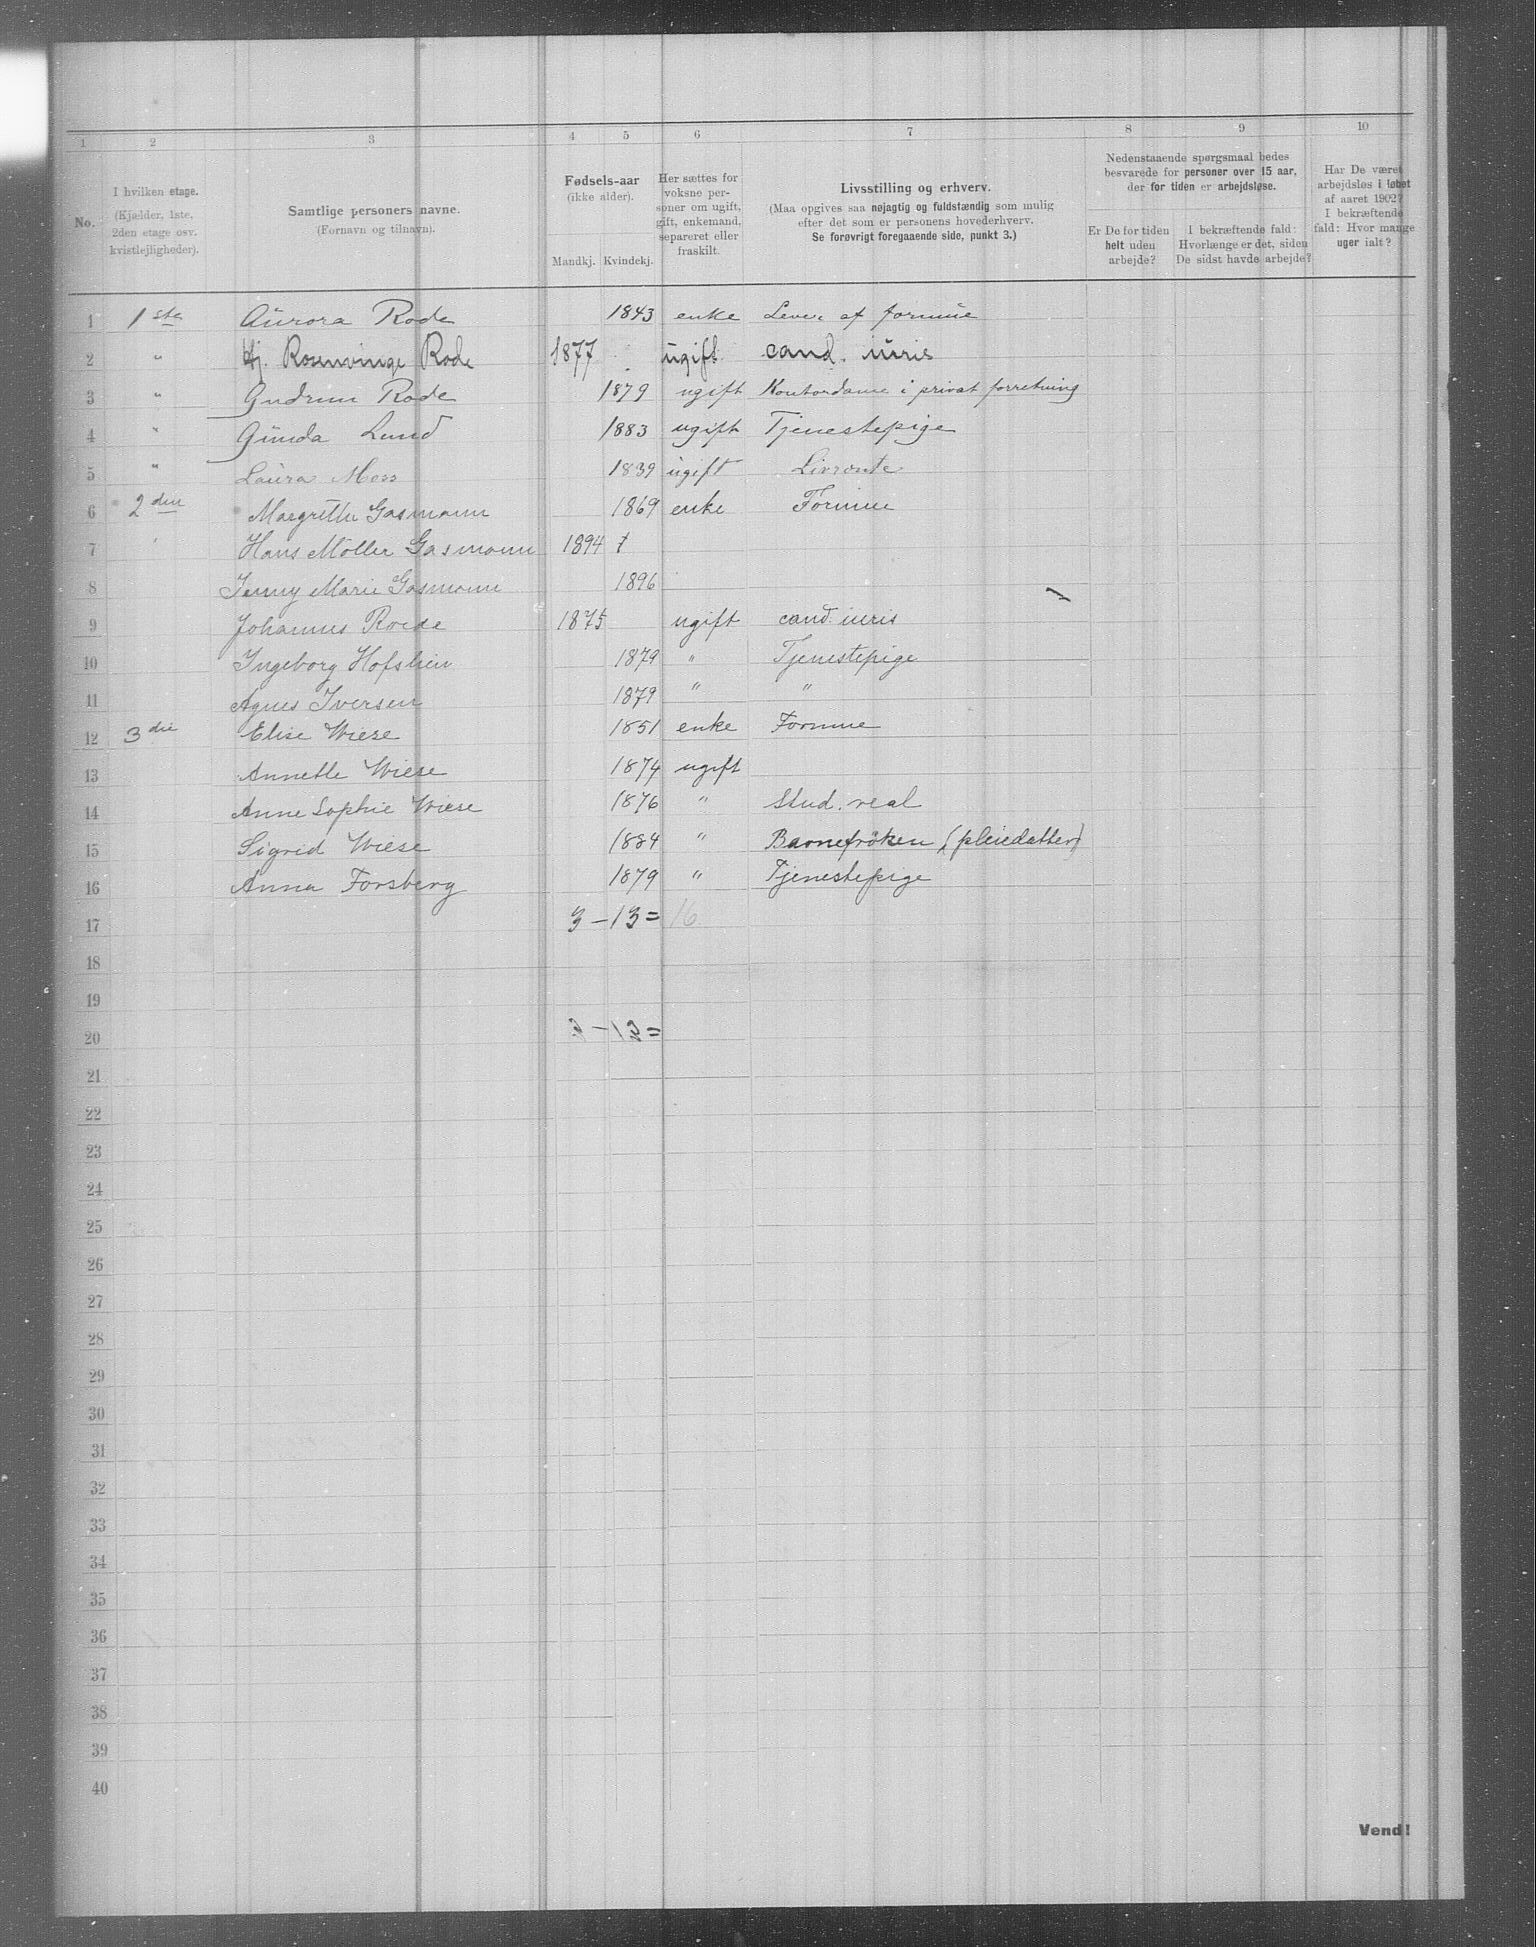 1 2 3 4 5 6 7 8 9 10
No.
I hvilken etage.
(Kjælder, 1ste,
2den etage osv.
kvistlejligheder).
Samtlige personers navne.
(Fornavn og tilnavn).
Fødsels-aar
(ikke alder).
Mandkj. Kvindekj.
Her sættes for
voksne per-
soner om ugift,
gift, enkemand,
separeret eller
fraskilt.
Livsstilling og erhverv.
(Maa opgives saa nøjagtig og fuldstændig som mulig
efter det som er personens hovederhverv.
Se forøvrigt foregaaende side, punkt 3.)
Nedenstaaende spørgsmaal bedes
besvarede for personer over 15 aar,
der for tiden er arbejdsløse.
Er De for tiden
helt uden
arbejde?
I bekræftende fald:
Hvorlænge er det, siden
De sidst havde arbejde?
Har De været
arbejdsløs i løbet
af aaret 1902?
I bekræftende
fald: Hvor mange
uger ialt?
1 1ste Aurora Rode 1843 enke Lever af formue
2 " Hj. Rosenvinge Rode 1877 ugift cand. iuris
3 " Gudrun Rode 1879 ugift Kontordame i privat forretning
4 " Gunda Lund 1883 ugift Tjenestepige
5 " Laura Moss 1839 ugift Livrente
6 2den Margrethe Gasmann 1869 enke Formue
7 " Hans Möller Gasmann 1894 t
8 Jenny Marie Gasmann 1896
9 Johannes Roede 1875 ugift cand. iuris
10 Ingeborg Hofstien 1879 " Tjenestepige
11 Agnes Iversen 1879 " "
12 3die Elise Wiese 1851 enke Formue
13 Annette Wiese 1874 ugift
14 Anne Sophie Wiese 1876 " Stud. real
15 Sigrid Wiese 1884 " Barnefröken (pleiedatter)
16 Anna Forsberg 1879 " Tjenestepige
17 3 - 13 = 16
18
19
20 3 - 13 =
21
22
23
24
25
26
27
28
29
30
31
32
33
34
35
36
37
38
39
40
Vend!